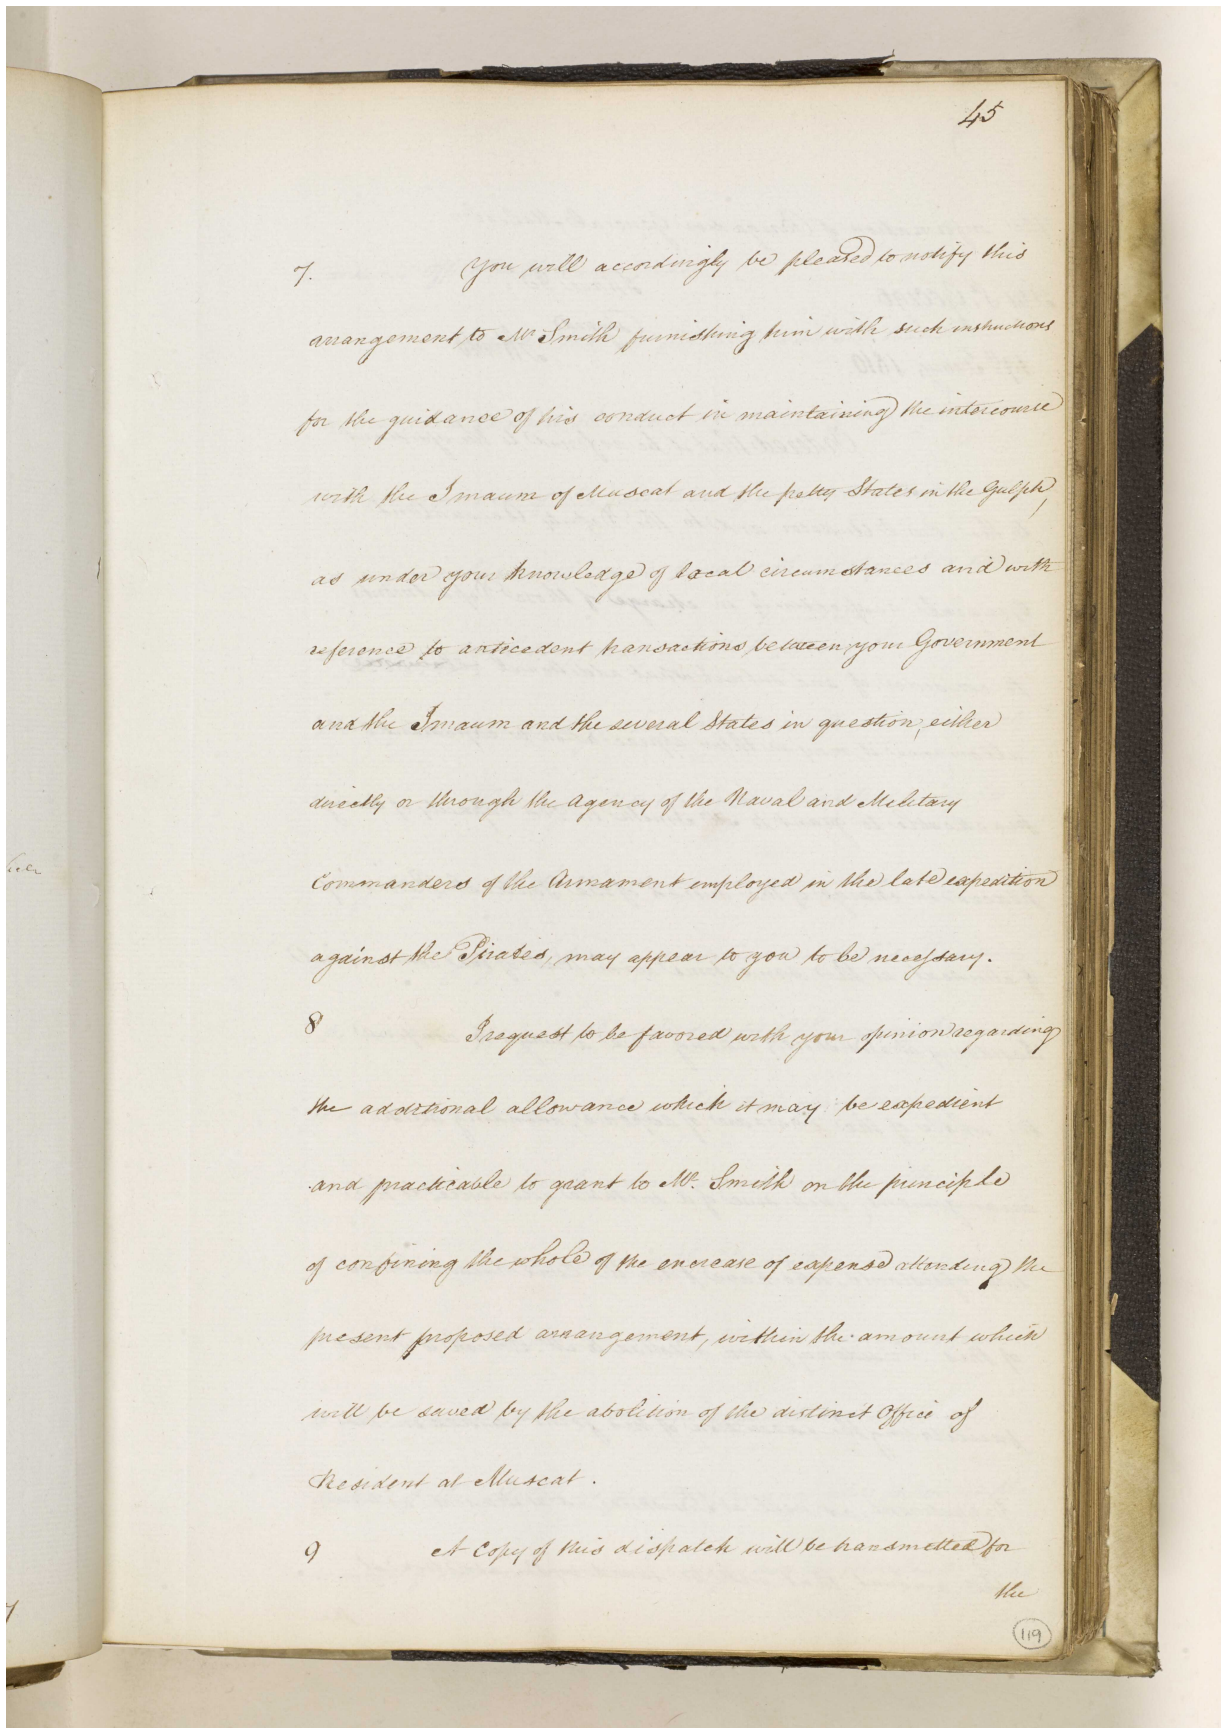 45
7. You will accordingly be pleased to notify this
arrangement to Mr Smith furnishing him with such instructions
for the guidance of his conduct in maintaining the intercourse
with the Imaum of Muscat and the petty States in the Gulph,
as under your knowledge of local circumstances and with
reference to anticedent transactions between your Government
and the Imaum and the several States in question, either
directly or through the Agency of the Naval and Military
Commanders of the Armament employed in the late expedition
against the Pirates, may appear to you to be necessary.
8 I request to be favored with your opinion regarding
the additional allowance which it may be expedient
and practicable to grant to Mr. Smith on the principle
of confining the whole of the encrease of expense attending the
present proposed arrangement, within the amount which
will be saved by the abolition of the distinct Office of
Resident at Muscat.
9 A Copy of this dispatch will be transmitted for
the
119